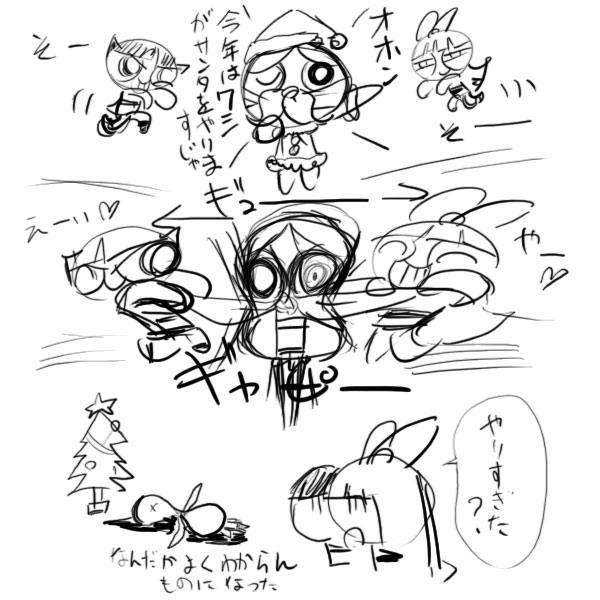 オホン
今年はワシ
がサンタをやりま
すじゃ
そー
そー
ギュー
えーい♡
やー♡
ギャピー
やりすぎた
?
なんだかよくわからん
ものになった